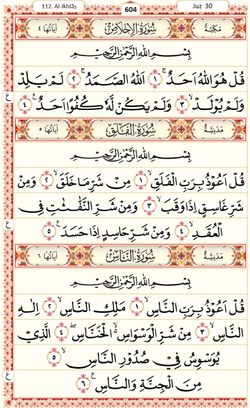 112. Al-Ikhlâṣ 604 Juz 30
مَكِّيَّة سُورَةُ الْإِخْلَاصِ آيَاتُهَا ٤
بِسْمِ اللّٰهِ الرَّحْمٰنِ الرَّحِيْمِ
قُلْ هُوَ اللّٰهُ اَحَدٌ ۚ ١ اَللّٰهُ الصَّمَدُ ۚ ٢ لَمْ يَلِدْ
وَلَمْ يُوْلَدْ ۙ ٣ وَلَمْ يَكُنْ لَّهٗ كُفُوًا اَحَدٌ ࣖ ٤
مَدَنِيَّة سُورَةُ الْفَلَقِ آيَاتُهَا ٥
بِسْمِ اللّٰهِ الرَّحْمٰنِ الرَّحِيْمِ
قُلْ اَعُوْذُ بِرَبِّ الْفَلَقِ ۙ ١ مِنْ شَرِّ مَا خَلَقَ ۙ ٢ وَمِنْ
شَرِّ غَاسِقٍ اِذَا وَقَبَ ۙ ٣ وَمِنْ شَرِّ النَّفّٰثٰتِ فِى
الْعُقَدِ ۙ ٤ وَمِنْ شَرِّ حَاسِدٍ اِذَا حَسَدَ ࣖ ٥
مَدَنِيَّة سُورَةُ النَّاسِ آيَاتُهَا ٦
بِسْمِ اللّٰهِ الرَّحْمٰنِ الرَّحِيْمِ
قُلْ اَعُوْذُ بِرَبِّ النَّاسِ ۙ ١ مَلِكِ النَّاسِ ۙ ٢ اِلٰهِ
النَّاسِ ۙ ٣ مِنْ شَرِّ الْوَسْوَاسِ ەۙ الْخَنَّاسِ ۖ ٤ الَّذِيْ
يُوَسْوِسُ فِيْ صُدُوْرِ النَّاسِ ۙ ٥
مِنَ الْجِنَّةِ وَالنَّاسِ ࣖ ٦